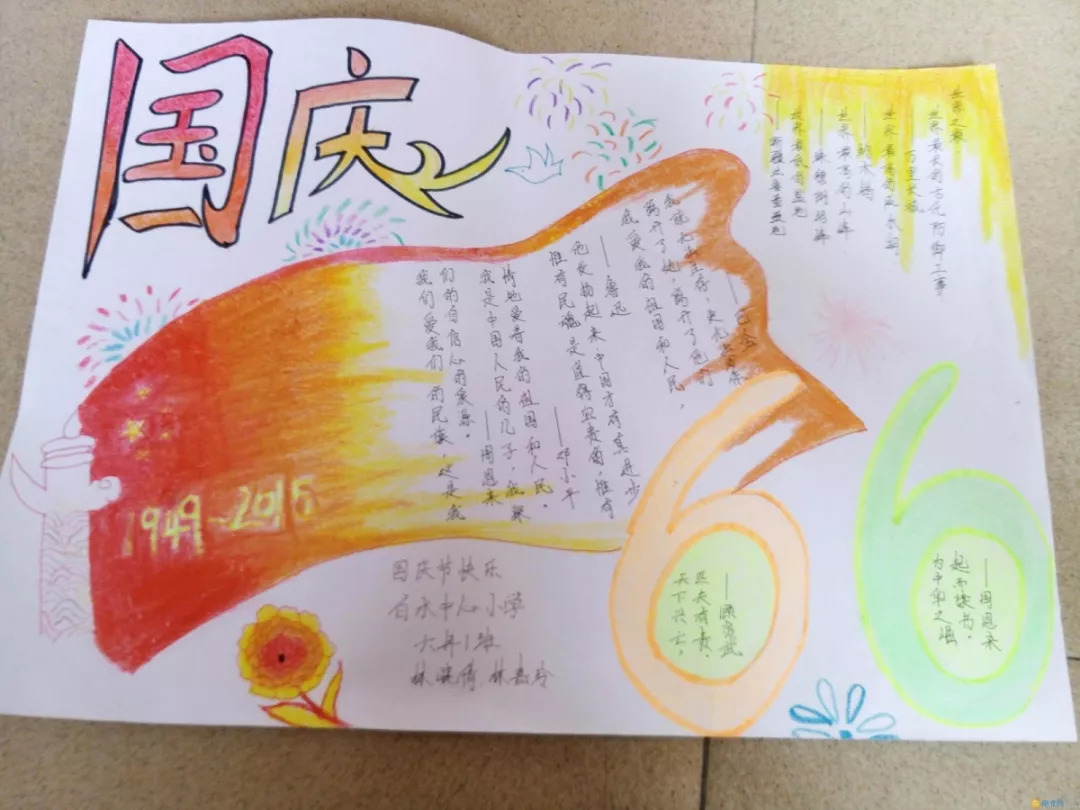 国庆
世界之最
世界最长的古代防御工事
万里长城
世界最高的咸水湖
——纳木错
世界最高的山峰
——珠穆朗玛峰
世界最低的盆地
——新疆吐鲁番盆地
我们爱我们的民族，这是我
们的自信心的泉源。
——周恩来
我是中国人民的儿子，我深
情地爱着我的祖国和人民。
——邓小平
惟有民魂是值得宝贵的，惟有
他发扬起来，中国才有真进步
——鲁迅
我爱我的祖国和人民，
离开了她，离开了他们
我就无法生存，更无法写作
——巴金
1949-2015
66
天下兴亡，
匹夫有责，
——顾炎武
为中华之崛
起而读书。
——周恩来
国庆节快乐
白水中心小学
六年1班
林 林